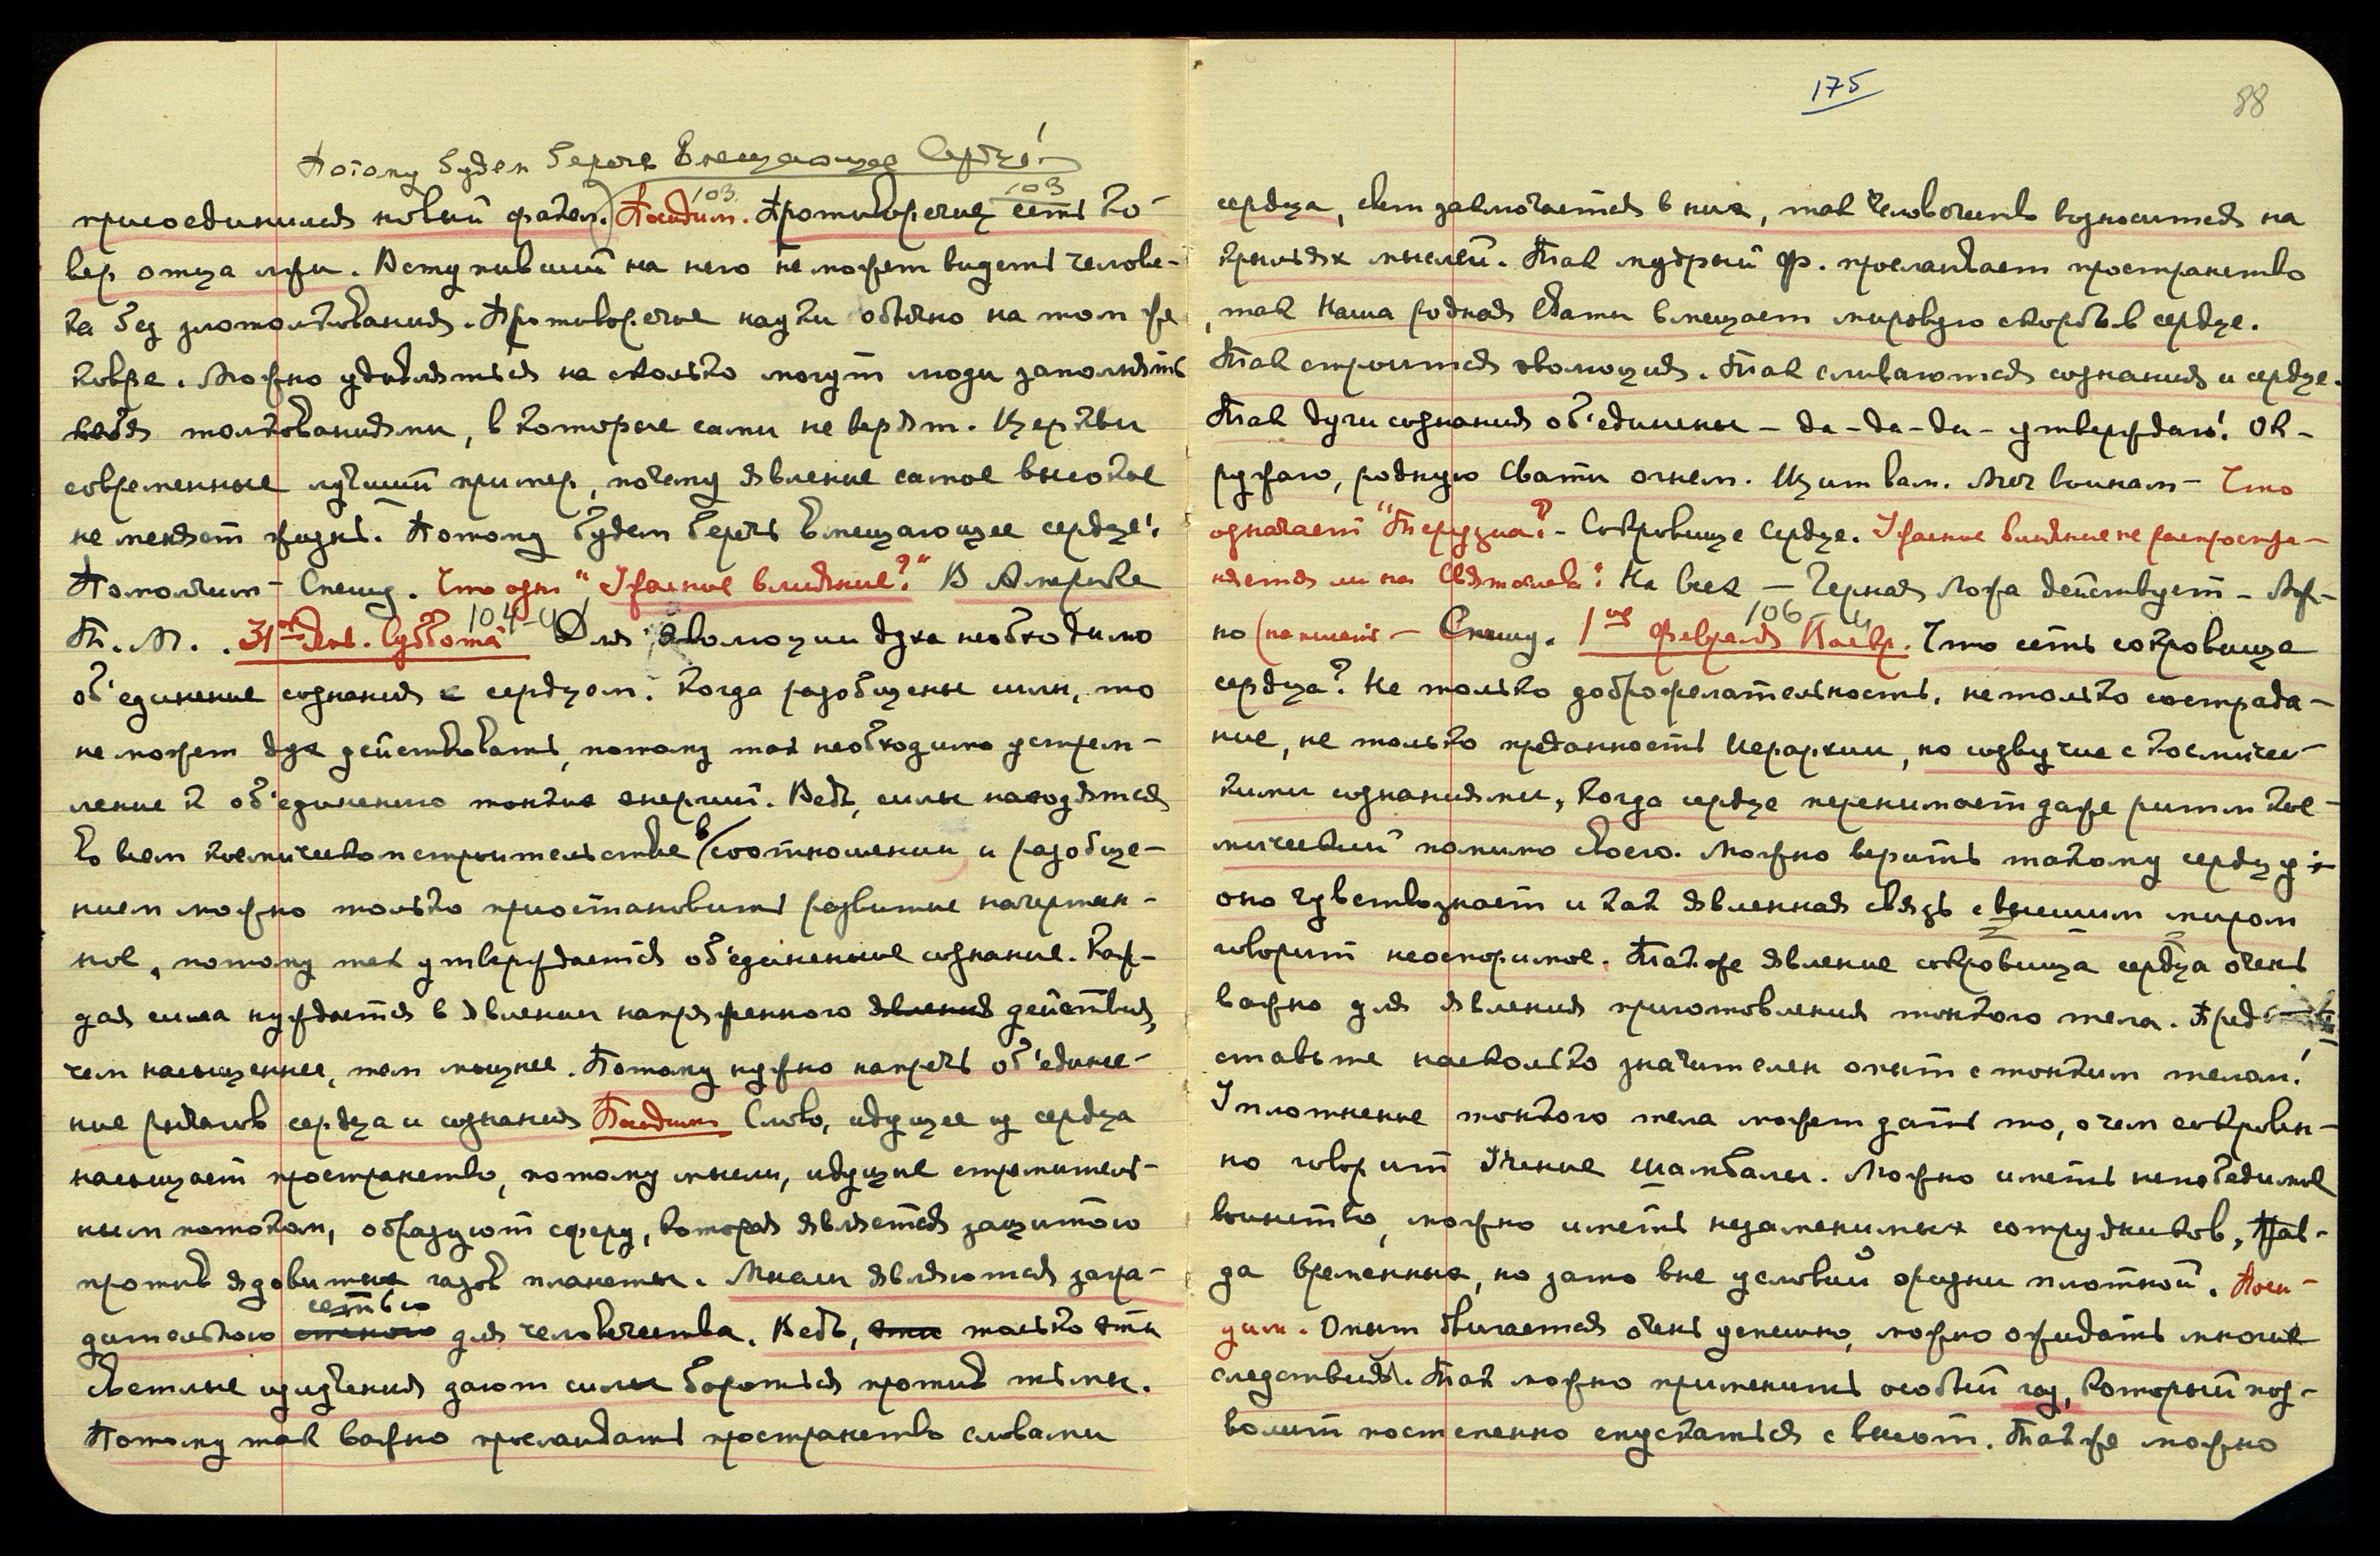 Потому будем беречь Вмещающее Сердце!
присоединился новый факел. Посидим. 103 Противоречие есть 103 ко-
вер отца лжи. Вступивший на него не может видеть челове-
ка без злотолкования. Противоречие науки обычно на том же
ковре. Можно удивляться на сколько могут люди заполнять
себя толкованиями, в которые сами не верят. Церкви
современные лучший пример, почему явление самое высокое
не меняет жизнь. Потому будем беречь вмещающее сердце!
Помолчим – Спешу. Что озн "Ужасные влияние?" В Америке
Т. М. . 31ое Янв. Суббота 104-й Для эволюции духа необходимо
об'единение сознания с сердцем. Когда разобщены силы, то
не может дух действовать, потому так необходимо устрем-
ление к об'единению тонких энергий. Ведь, силы находятся
во всем космическом строительстве в соотношении и разобще-
нием можно только приостановить развитие начертан-
ное, потому так утверждается об'единенное сознание. Каж-
дая сила нуждается в явлении напряженного явления действия,
чем насыщеннее, тем мощнее. Потому нужно напречь об'едине-
ние рычагов сердца и сознания Посидим Слово, идущее из сердца
насыщает пространство, потому мысли, идущие стремитель-
ным потоком, образуют сферу, которая является защитою
против ядовитых газов планеты. Мысли являются загра-
сетью
дительною стеною для человечества. Ведь, эти только эти
светлые излучения дают силы бороться против тьмы.
Потому так важно прослаивать пространство словами
175
88
сердца, свет заключается в них, так человечество возносится на
крыльях мыслей. Так мудрый Ф. прославляет пространство
, так Наша родная Свати вмещает мировую скорбь в сердце.
Так строится эволюция. Так сливаются сознания и сердце.
Так духи сознания об'единены – да – да – да – утверждаю! Ок-
ружаю, родную Свати огнем. Щит вам. Меч воинам – Что
означает "Терузиа?" – Сокровище Сердце. Ужасное влияние не распростра-
няется ли на Святослава? На всех – Черная Ложа действует – Мож-
но (написать – Спешу. 1ое Февраля Воскр. 106-й Что есть сокровище
сердца? Не только доброжелательность, не только сострада-
ние, не только преданность Иерархии, но созвучие с космичес-
кими сознаниями, когда сердце перенимает даже ритм кос-
мический помимо своего. Можно верить такому сердцу :
оно чувствознает и как явленная связь с высшим миром
говорит неоспоримое. Также явление сокровища сердца очень
важно для явления приготовления тонкого тела. Пред
ставьте насколько значителен опыт с тонким телом!
Уплотнение тонкого тела может дать то, о чем сокровен-
но говорит Учение Шамбалы. Можно иметь непобедимое
воинство, можно иметь незаменимых сотрудников, Прав-
да временных, но зато вне условий оризны плотной. Поси-
дим. Опыт двигается очень успешно, можно ожидать многие
следствий. Так можно применить особый газ, который поз-
волит постепенно спускаться с высот. Также можно